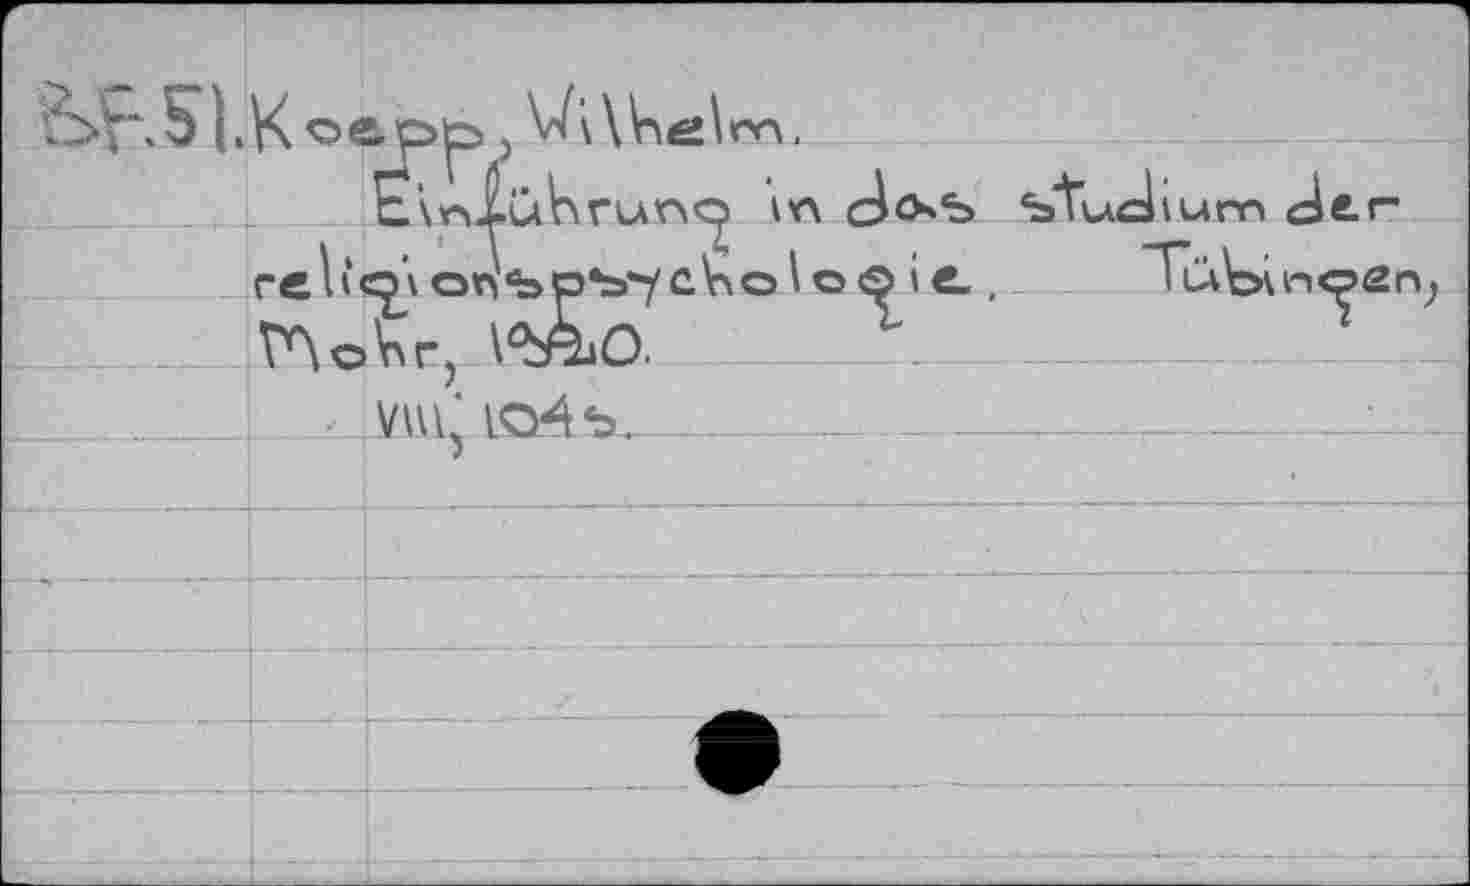 BF.51. Koepp, Wilhelm.
Einführung in das studium der
religionspsychologie. Tübingen,
Mohr, 1920.
viii, 104 s.